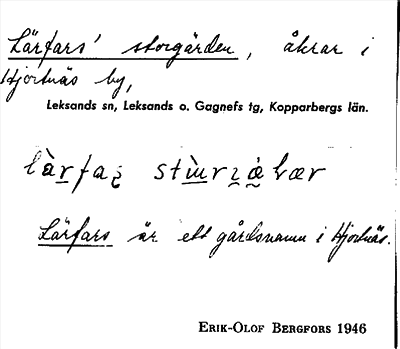 Lärfars' storgården, åkrar i
Hjortnäs by,
Leksands sn, Leksands o. Gagnefs tg, Kopparbergs län.
Lärfars är ett gårdsnamn i Hjortnäs.
ERIK-OLOF BERGFORS 1946